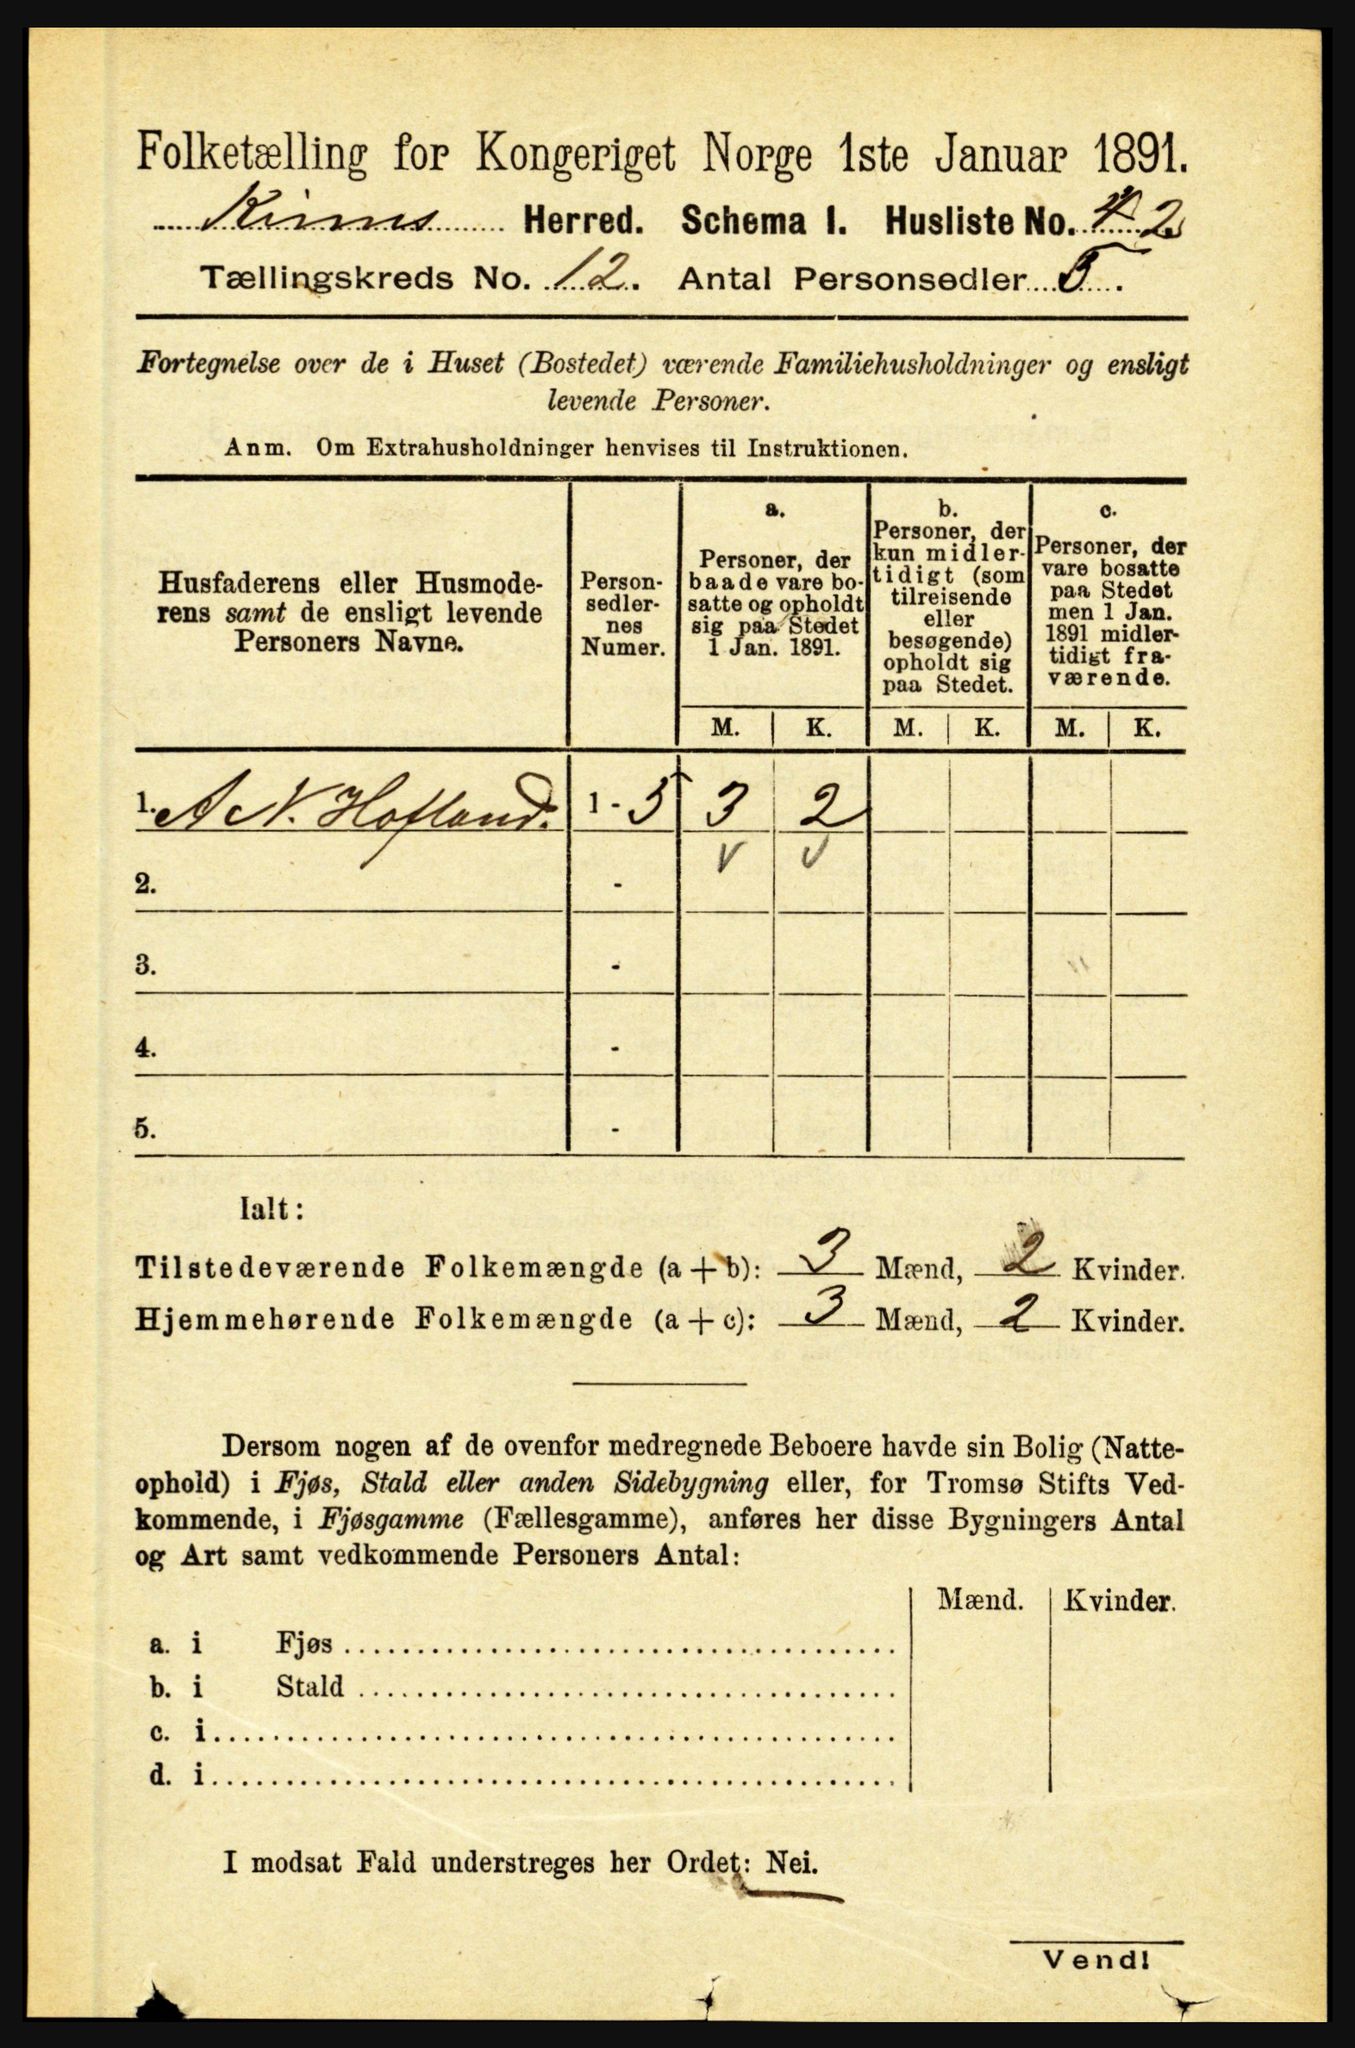 Folketælling for Kongeriget Norge 1ste Januar 1891.
Kinns Herred. Schema I. Husliste No. 2
Tællingskreds No. 12. Antal Personsedler 5.
Fortegnelse over de i Huset (Bostedet) værende Familiehusholdninger og ensligt
levende Personer.
Anm. Om Extrahusholdninger henvises til Instruktionen.
Husfaderens eller Husmode-
rens samt de ensligt levende
Personers Navne.
Person-
sedler-
nes
Numer.
a.
Personer, der
baade vare bo-
satte og opholdt
sig paa Stedet
1 Jan. 1891.
b.
Personer, der
kun midler-
tidigt (som
tilreisende
eller
besøgende)
opholdt sig
paa Stedet.
c.
Personer, der
vare bosatte
paa Stedet
men 1 Jan.
1891 midler-
tidigt fra-
værende.
M. K. M. K. M. K.
1. A N. Hofland. 1 - 5 3 2
2. -
3. -
4. -
5. -
Ialt:
Tilstedeværende Folkemængde (a + b): 3 Mænd, 2 Kvinder.
Hjemmehørende Folkemængde (a + c): 3 Mænd, 2 Kvinder.
Dersom nogen af de ovenfor medregnede Beboere havde sin Bolig (Natte-
ophold) i Fjøs, Stald eller anden Sidebygning eller, for Tromsø Stifts Ved-
kommende, i Fjøsgamme (Fællesgamme), anføres her disse Bygningers Antal
og Art samt vedkommende Personers Antal:
Mænd. Kvinder.
a. i Fjøs
b. i Stald
c. i
d. i
I modsat Fald understreges her Ordet: Nei.
Vend!